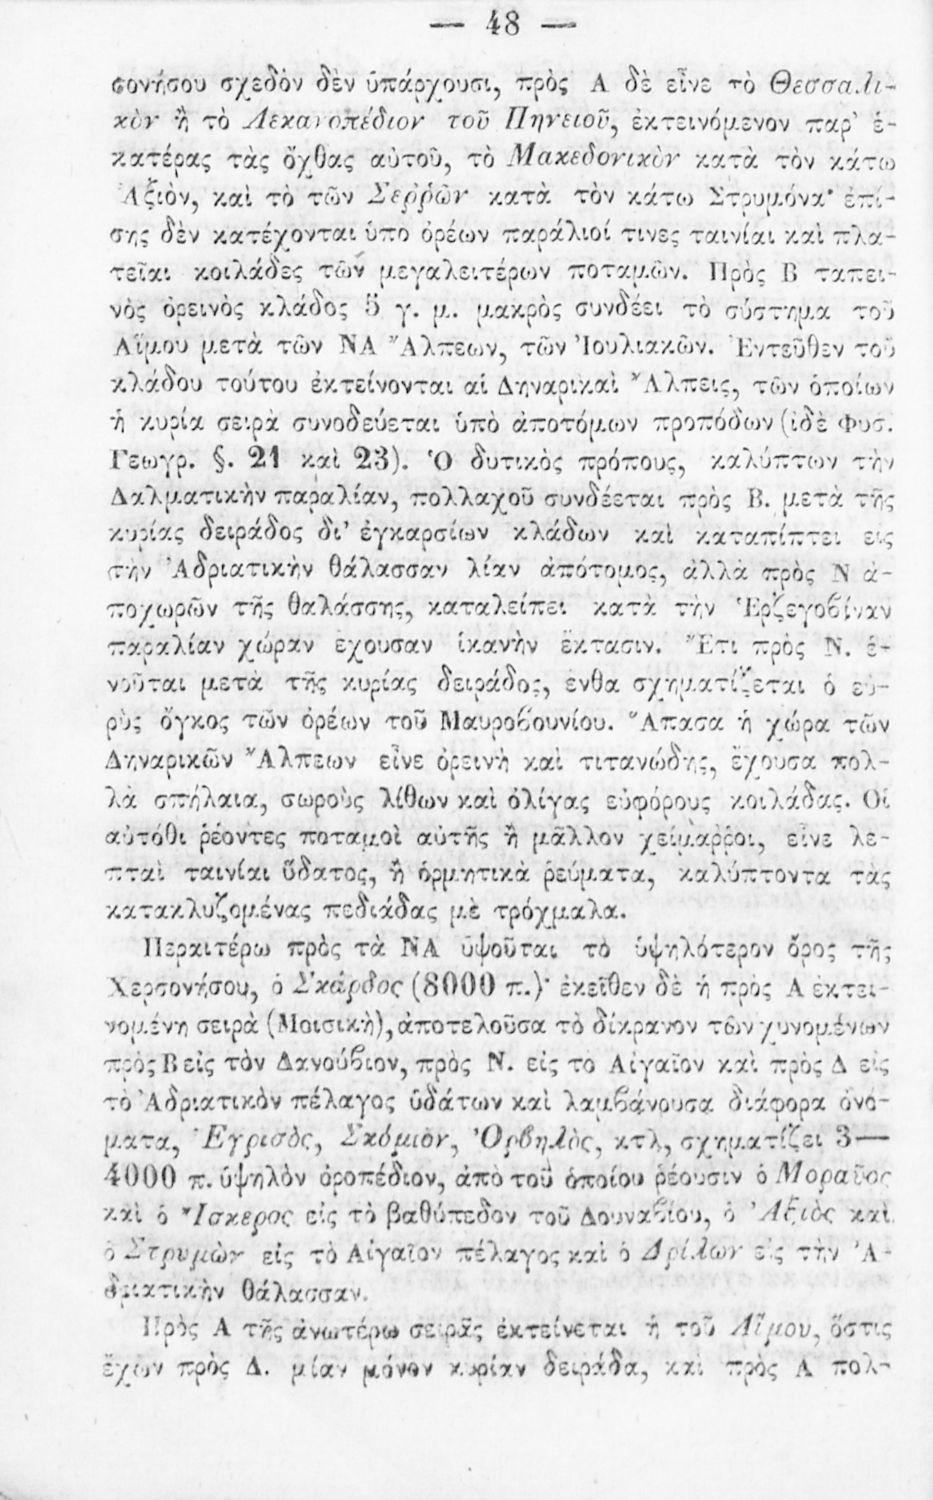 — 48 —
σονήσου σχεδὸν δὲν ὑπάρχουσι, πρὸς Α δὲ εἶνε τὸ Θεσσαλι-
κὸν ἢ τὸ Λεκανοπέδιον τοῦ Πηνειοῦ, ἐκτεινόμενον παρ' ἑ-
κατέρας τὰς ὄχθας αὐτοῦ, τὸ Μακεδονικὸν κατὰ τὸν κάτω
Ἀξιὸν, καὶ τὸ τῶν Σεῤῥῶν κατὰ τὸν κάτω Στρυμόνα· ἐπί-
σης δὲν κατέχονται ὑπὸ ὀρέων παράλιοί τινες ταινίαι καὶ πλα-
τεῖαι κοιλάδες τῶν μεγαλειτέρων ποταμῶν. Πρὸς Β ταπει-
νὸς ὀρεινὸς κλάδος 5 γ. μ. μακρὸς συνδέει τὸ σύστημα τοῦ
Αἵμου μετὰ τῶν ΝΑ Ἄλπεων, τῶν Ἰουλιακῶν. Ἐντεῦθεν τοῦ
κλάδου τούτου ἐκτείνονται αἱ Δηναρικαὶ Ἄλπεις, τῶν ὁποίων
ἡ κυρία σειρὰ συνοδεύεται ὑπὸ ἀποτόμων προπόδων (ἰδὲ Φυσ.
Γεωγρ. §. 21 καὶ 23). Ὁ δυτικὸς πρόπους, καλύπτων τὴν
Δαλματικὴν παραλίαν, πολλαχοῦ συνδέεται πρὸς Β. μετὰ τῆς
κυρίας δειράδος δι' ἐγκαρσίων κλάδων καὶ καταπίπτει εἰς
τὴν Ἀδριατικὴν θάλασσαν λίαν ἀπότομος, ἀλλὰ πρὸς Ν ἀ-
ποχωρῶν τῆς θαλάσσης, καταλείπει κατὰ τὴν Ἑρζεγοβίναν
παραλίαν χώραν ἔχουσαν ἱκανὴν ἔκτασιν. Ἔτι πρὸς Ν. ἑ-
νοῦται μετὰ τῆς κυρίας δειράδος, ἔνθα σχηματίζεται ὁ εὐ-
ρὺς ὄγκος τῶν ὀρέων τοῦ Μαυροβουνίου. Ἅπασα ἡ χώρα τῶν
Δηναρικῶν Ἄλπεων εἶνε ὀρεινὴ καὶ τιτανώδης, ἔχουσα πολ-
λὰ σπήλαια, σωροὺς λίθων καὶ ὀλίγας εὐφόρους κοιλάδας. Οἱ
αὐτόθι ῥέοντες ποταμοὶ αὐτῆς ἢ μᾶλλον χείμαῤῥοι, εἶνε λε-
πταὶ ταινίαι ὕδατος, ἢ ὁρμητικὰ ῥεύματα, καλύπτοντα τὰς
κατακλυζομένας πεδιάδας μὲ τρόχμαλα.
Περαιτέρω πρὸς τὰ ΝΑ ὑψοῦται τὸ ὑψηλότερον ὄρος τῆς
Χερσονήσου, ὁ Σκάρδος (8000 π.)· ἐκεῖθεν δὲ ἡ πρὸς Α ἐκτει-
νομένη σειρὰ (Μοισικὴ), ἀποτελοῦσα τὸ δίκρανον τῶν χυνομένων
πρὸς Β εἰς τὸν Δανούβιον, πρὸς Ν. εἰς τὸ Αἰγαῖον καὶ πρὸς Δ εἰς
τὸ Ἀδριατικὸν πέλαγος ὑδάτων καὶ λαμβάνουσα διάφορα ὀνό-
ματα, Ἐγρισὸς, Σκόμιον, Ὀρβηλὸς, κτλ, σχηματίζει 3—
4000 π. ὑψηλὸν ὀροπέδιον, ἀπὸ τοῦ ὁποίου ῥέουσιν ὁ Μοραῦος
καὶ ὁ Ἴσκερος εἰς τὸ βαθύπεδον τοῦ Δουναβίου, ὁ Ἀξιὸς καὶ
ὁ Στρυμὼν εἰς τὸ Αἰγαῖον πέλαγος καὶ ὁ Δρίλων εἰς τὴν Ἀ-
δριατικὴν θάλασσαν.
Πρὸς Α τῆς ἀνωτέρω σειρᾶς ἐκτείνεται ἡ τοῦ Αἵμου, ὅστις
ἔχων πρὸς Δ. μίαν μόνον κυρίαν δειράδα, καὶ πρὸς Α πολ-